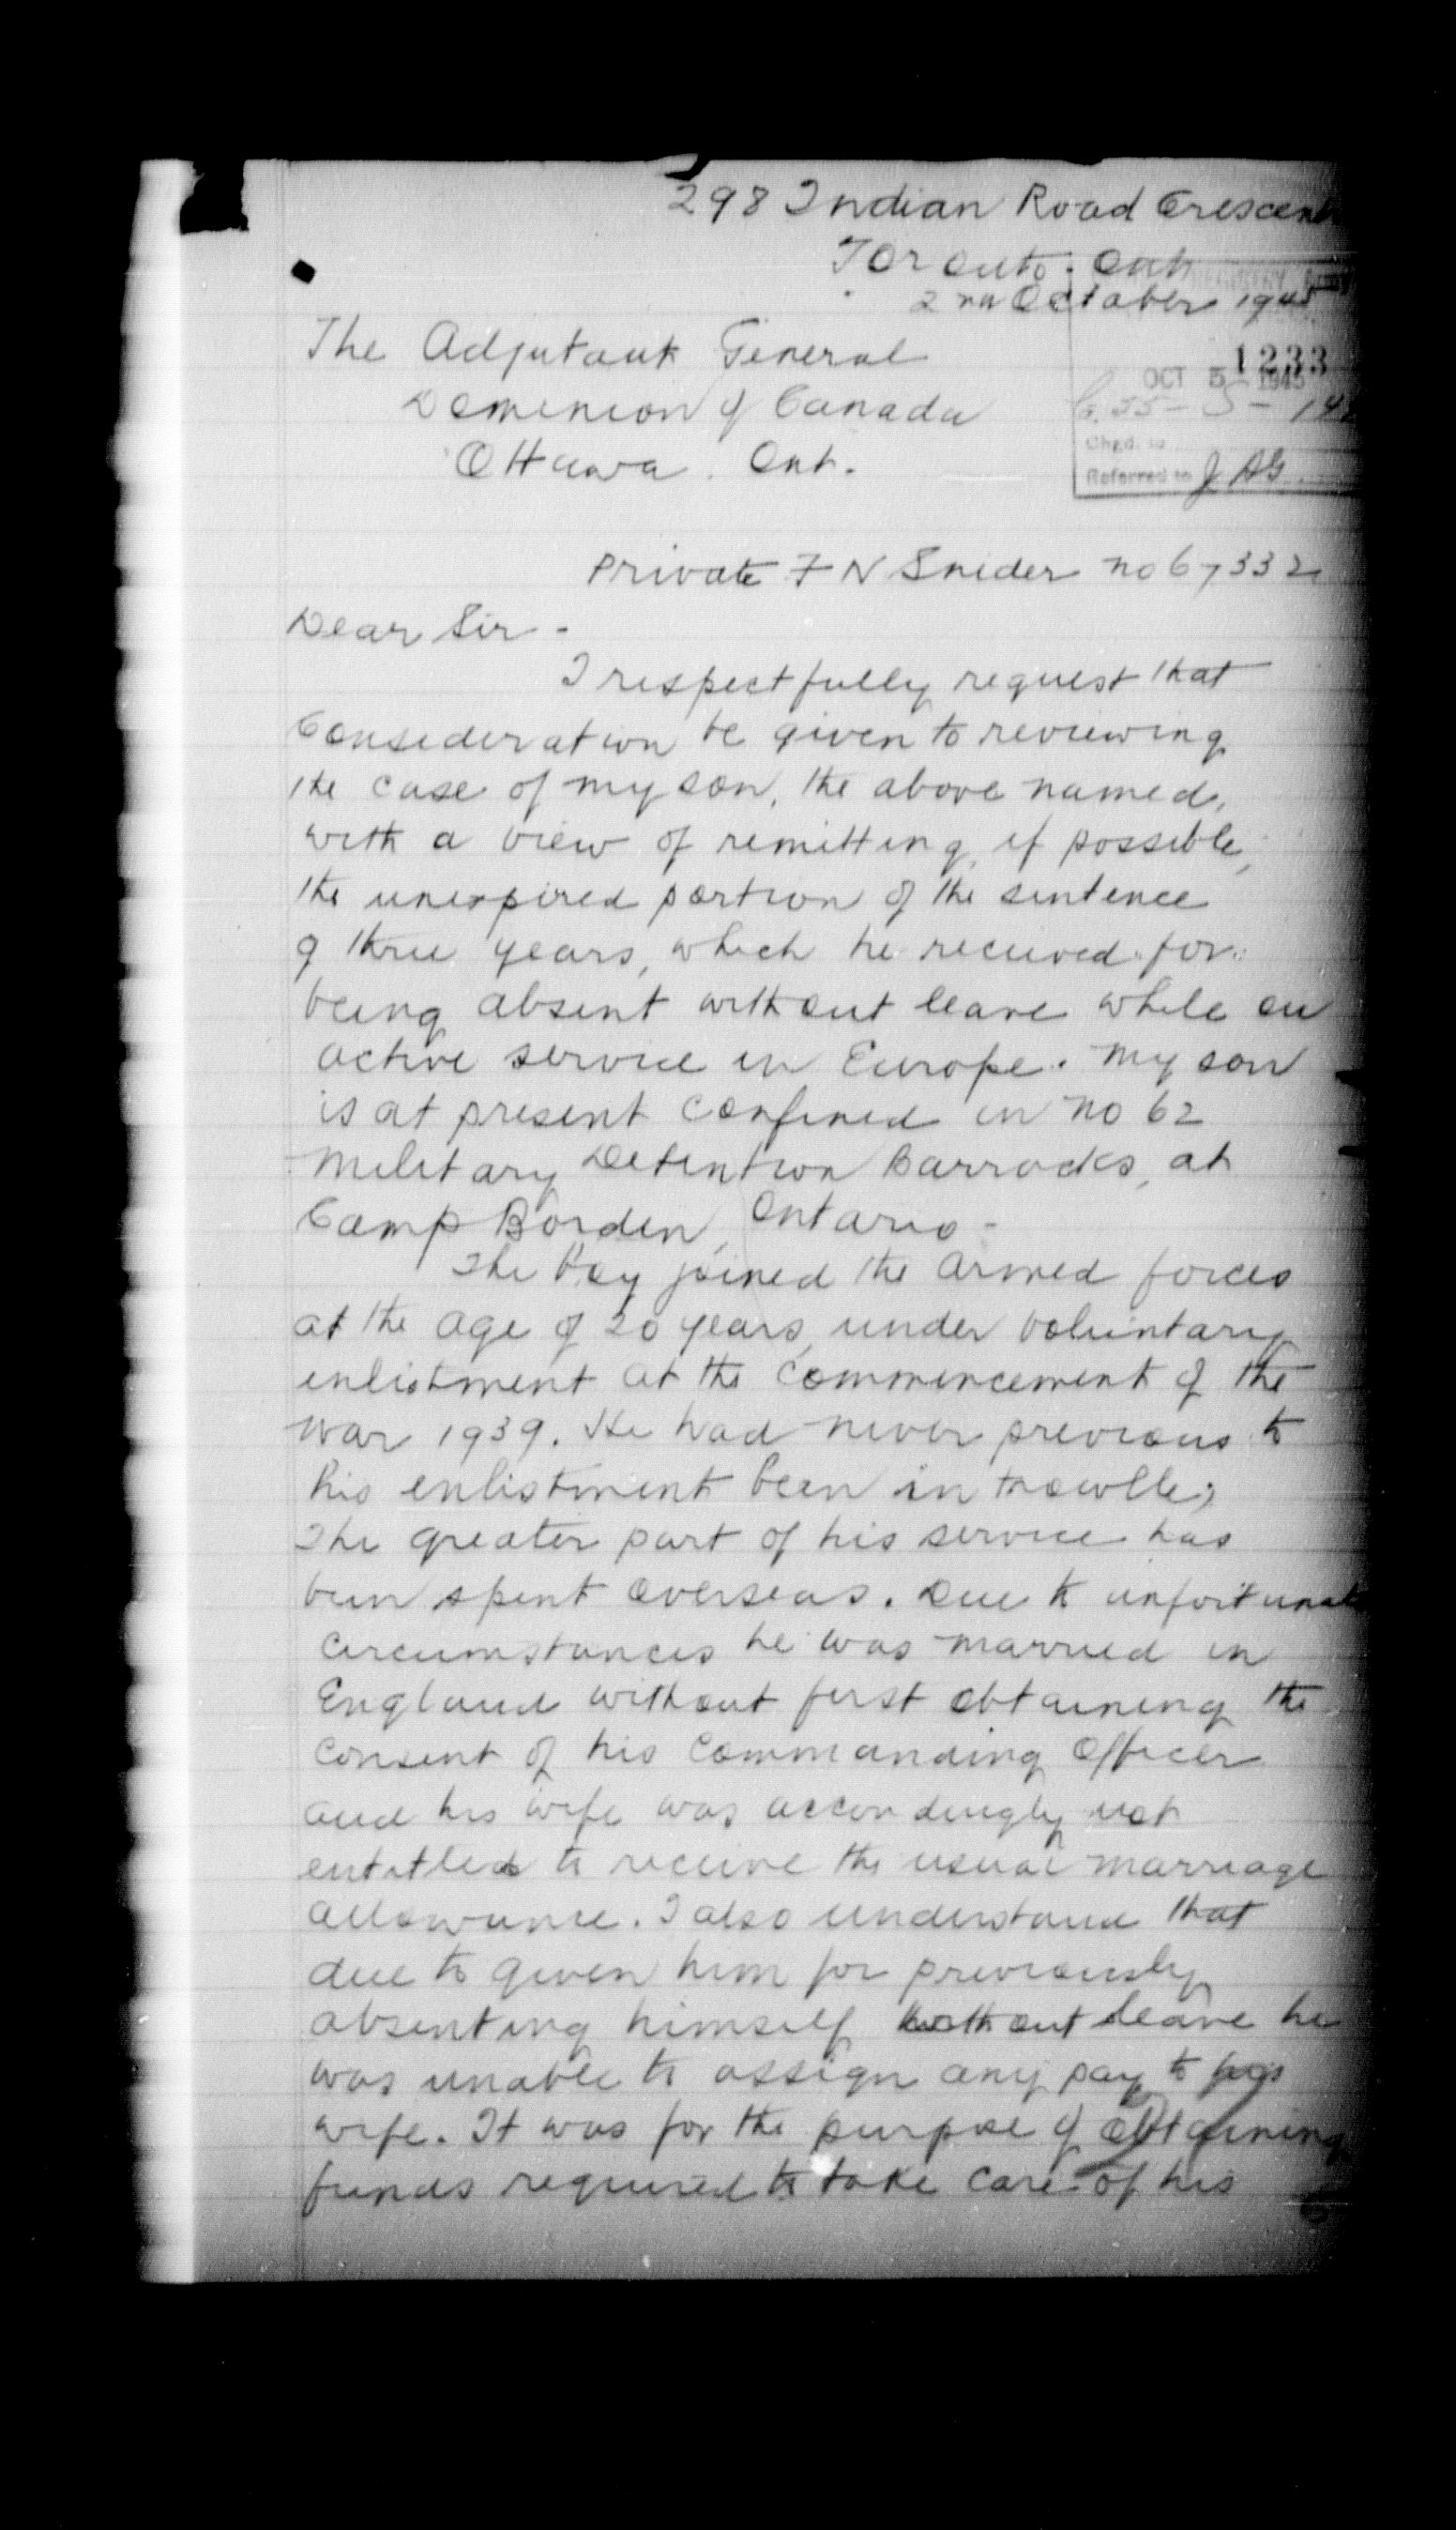 298 Indian Road Crescent
Toronto. Ont.
2nd October 1945
1233
OCT 5 1945
The Adjutant General
Dominion of Canada
Chgd. to
Ottawa. Ont.
Referred to JAG
Private F N Snider no 67332
Dear Sir -
I respectfully request that
Consideration be given to reviewing
the case of my son, the above named,
with a view of remitting, if possible,
the unexpired portion of the sentence
of three years, which he received for
being absent without leave while on
active service in Europe. My son
is at present confined in no 62
Military Detention Barracks, at
Camp Borden, Ontario -
The boy joined the armed forces
at the age of 20 years, under voluntary
enlistment at the commencement of the
war 1939. He had never previous to
his enlistment been in trouble,
The greater part of his service has
been spent overseas. Due to unfortunate
circumstances he was married in
England without first obtaining the
consent of his Commanding Officer
and his wife was accordingly not
entitled to receive the usual marriage
allowance. I also understand that
due to given him for previously
absenting himself without leave he
was unable to assign any pay to his
wife. It was for the purpose of obtaining
funds required to take care of his